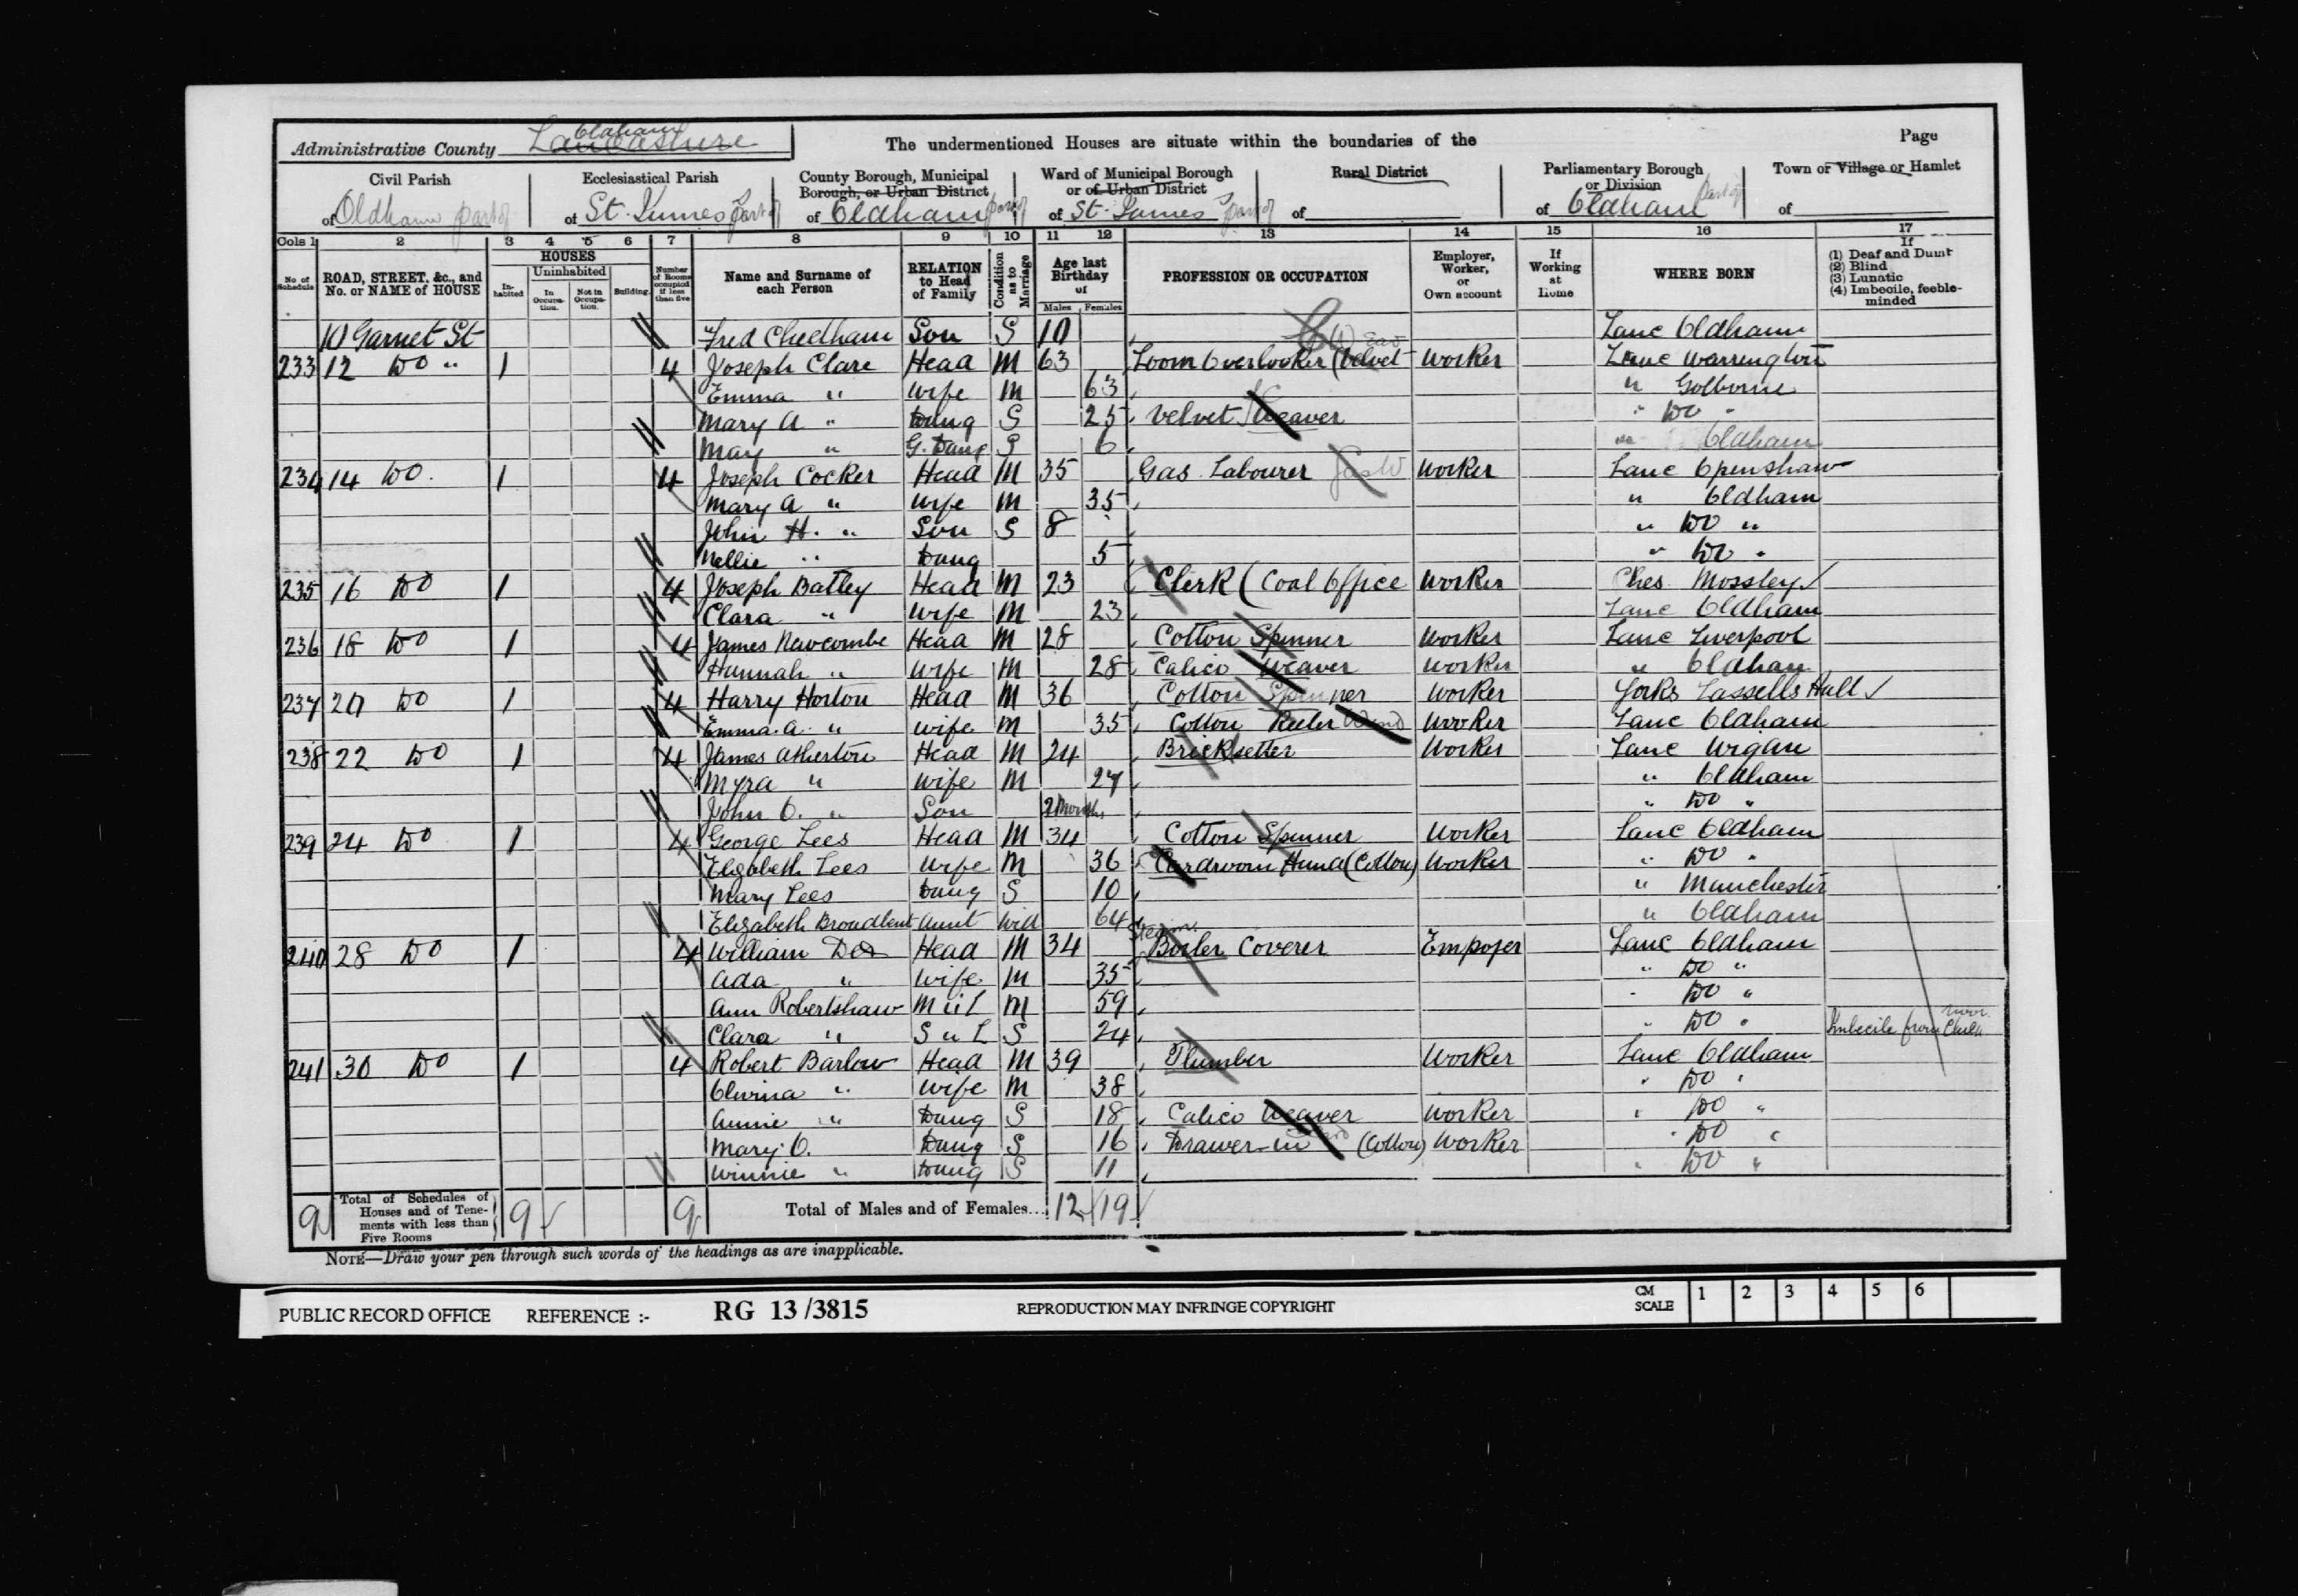 Administrative County Lancashire Oldham
The undermentioned Houses are situate within the boundaries of the
Page
Civil Parish
of Oldham part of
Ecclesiastical Parish
of St. James part of
County Borough, Municipal
Borough, or Urban District
of Oldham part of
Ward of Municipal Borough
or of Urban District
of St. James part of
Rural District
of
Parliamentary Borough
or Division
of Oldham Part of
Town or Village or Hamlet
of
Cols 1 2 3 4 5 6 7 8 9 10 11 12 13 14 15 16 17
No of Schedule
ROAD, STREET, &c., and
No. or NAME of HOUSE
HOUSES
In-habited
Uninhabited
In Occupa-tion.
Not in Occupa-tion.
Building.
Number of Rooms occupied if less than five
Name and Surname of
each Person
RELATION
to Head
of Family
Condition as to Marriage
Age last
Birthday
of
Males Females
PROFESSION OR OCCUPATION
Employer,
Worker,
or
Own account
If
Working
at
Home
WHERE BORN
If
(1) Deaf and Dumb
(2) Blind
(3) Lunatic
(4) Imbecile, feeble-
minded
10 Garnet St Fred Cheetham Son S 10 Lanc Oldham
233 12 Do " 1 4 Joseph Clare Head M 63 Loom Overlooker (Velvet Worker Lanc Warrington
Emma " Wife M 63 " Golborne
Mary A " Daug S 25 Velvet Weaver " Do "
May " G. Daug S 6 " Oldham
234 14 Do. 1 4 Joseph Cocker Head M 35 Gas Labourer Worker Lanc Openshaw
Mary A " Wife M 35 " Oldham
John H. " Son S 8 " Do "
Nellie " Daug 5 " Do "
235 16 Do 1 4 Joseph Batley Head M 23 Clerk (Coal Office Worker Ches Mossley
Clara " Wife M 23 Lanc Oldham
236 18 Do 1 4 James Newcombe Head M 28 Cotton Spinner Worker Lanc Liverpool
Hannah " Wife M 28 Calico Weaver Worker " Oldham
237 20 Do 1 4 Harry Horton Head M 36 Cotton Spinner Worker Yorks Lassells Hall
Emma. A. " Wife M 35 Cotton Reeler Wind Worker Lanc Oldham
238 22 Do 1 4 James Atherton Head M 24 Bricksetter Worker Lanc Wigan
Myra " Wife M 27 " Oldham
John O. " Son 2 Months " Do "
239 24 Do 1 4 George Lees Head M 34 Cotton Spinner Worker Lanc Oldham
Elizabeth Lees Wife M 36 Cardroom Hand (Cotton) Worker " Do "
Mary Lees Daug S 10 " Manchester
Elizabeth Broadbent Aunt Wid 64 " Oldham
240 28 Do 1 4 William Head M 34 Steam Boiler Coverer Empoyer Lanc Oldham
Ada " Wife M 35 " Do "
Ann Robertshaw M in L M 59 " Do "
Clara " S in L S 24 " Do " Imbecile from
241 30 Do 1 4 Robert Barlow Head M 39 Plumber Worker Lanc Oldham
Clurina " Wife M 38 " Do "
Annie " Daug S 18 Calico Weaver Worker " Do "
Mary O. Daug S 16 Drawer-in (Cotton) Worker " Do "
Winnie " Daug S 11 " Do "
9 Total of Schedules of
Houses and of Tene-
ments with less than
Five Rooms
9 9 Total of Males and of Females... 12 19
NOTE—Draw your pen through such words of the headings as are inapplicable.
PUBLIC RECORD OFFICE REFERENCE :- RG 13/3815 REPRODUCTION MAY INFRINGE COPYRIGHT CM SCALE 1 2 3 4 5 6